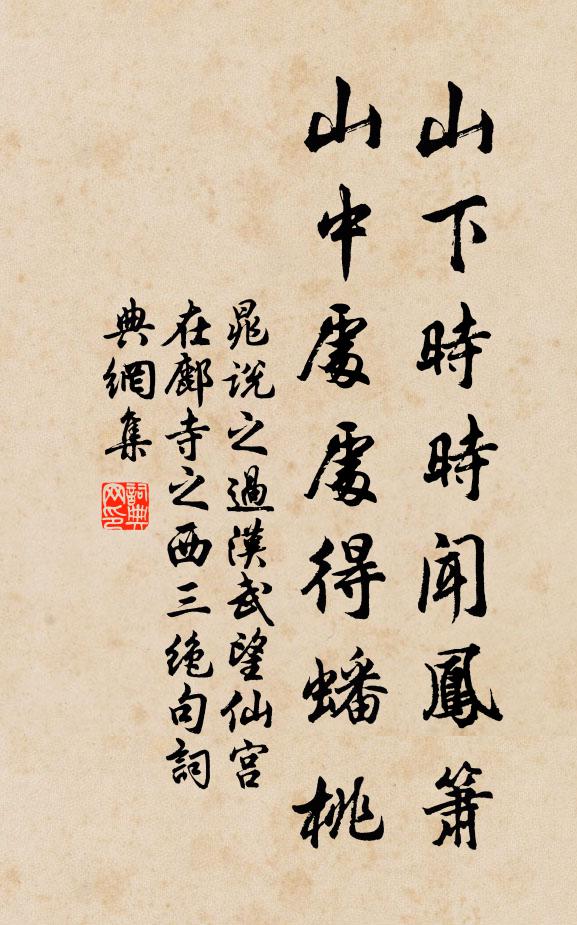 山下時時聞鳳簫
山中處處得蟠桃
晁說之過漢武望仙宮
在鄜寺之西三絕句詞
典網集
詞典網印